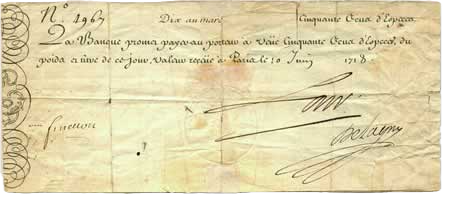 N.° 4963 Dix au marc Cinquante Ecus d'Especes
La Banque promet payer au porteur à veüe Cinquante Ecus d'Especes, du
poids et titre de ce jour, valeur reçeüe à Paris le 10 Juin 1718